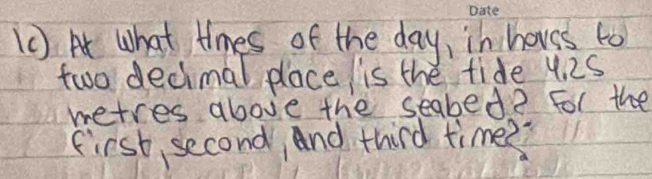 Date
1c) At What times of the day, in hours to
two decimal place, is the tide 4.25
metres above the seabed? For the
first, second, and third time?